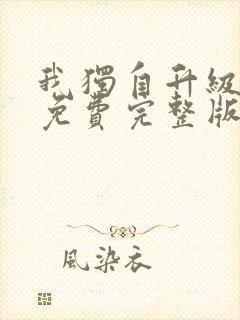 我獨自升級
免費完整版
風染衣